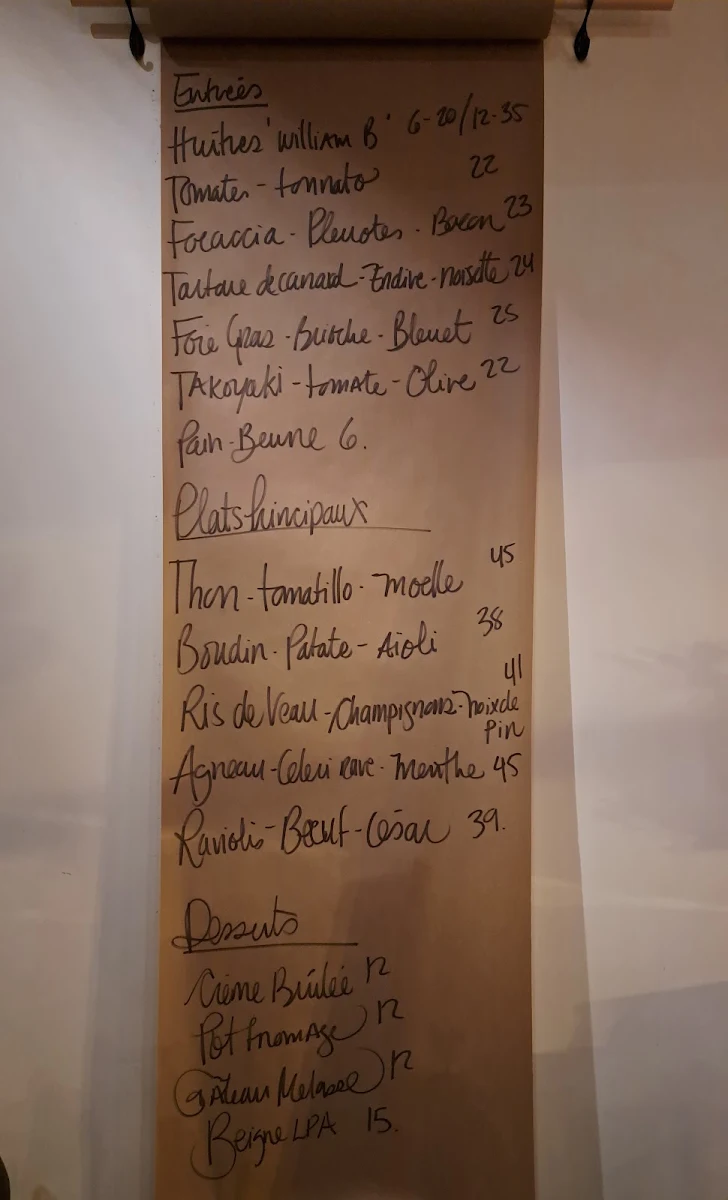 Entrées
Huîtres 'William B' 6-20/12-35
Tomates - tonnato 22
Focaccia - Pleurotes - Bacon 23
Tartare de canard - Endive - noisette 24
Foie Gras - Brioche - Bleuet 25
TAKOyaki - tomate - Olive 22
Pain - Beurre 6.
Plats Principaux
Thon - tomatillo - moelle 45
Boudin - Patate - Aïoli 38
Ris de Veau - Champignons - noix de 41
Pin
Agneau - Céleri rave - Menthe 45
Raviolis - Boeuf - César 39.
Desserts
Crème Brûlée 12
Pot fromAge 12
gâteau Mélasse 12
Beigne LPA 15.